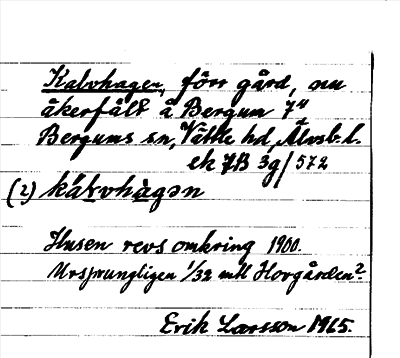 Kalvhagen, förr gård, nu
åkerfält å Bergum 7⁴
Bergums sn, Vättle hd, Älvsb. l.
ek 7B 3g/572
(2) kálvhàgən
Husen revs omkring 1900.
Ursprungligen 1/32 mtl Hovgården².
Erik Larsson 1965.